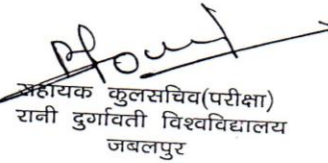 सहायक कुलसचिव(परीक्षा)
रानी दुर्गावती विश्वविद्यालय
जबलपुर